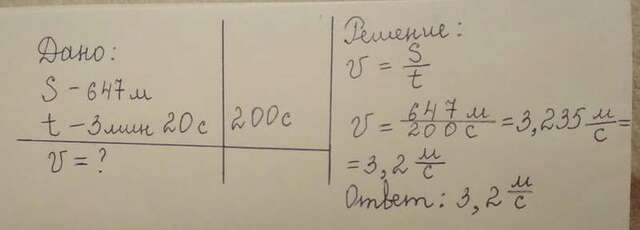 Дано:
S - 647м
t - 3мин 20с 200с
v = ?
Решение:
v = S/t
v = 647 м/200 с = 3,235 м/с =
= 3,2 м/с
Ответ: 3,2 м/с